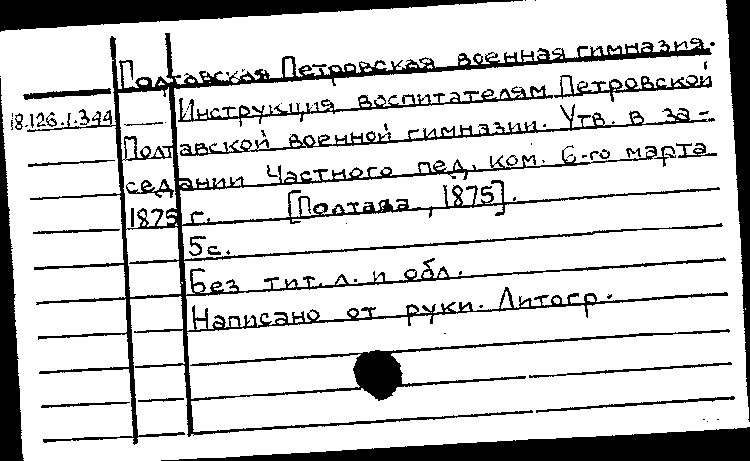 Полтавская Петровская военная гимназия.
18.126.1.344 Инструкция воспитателям Петровской
Полтавской военной гимназии. Утв. в за-
седании Частного пед. ком. 6-го марта
1875 г. [Полтава, 1875].
5с.
Без тит. л. и обл.
Написано от руки. Литогр.